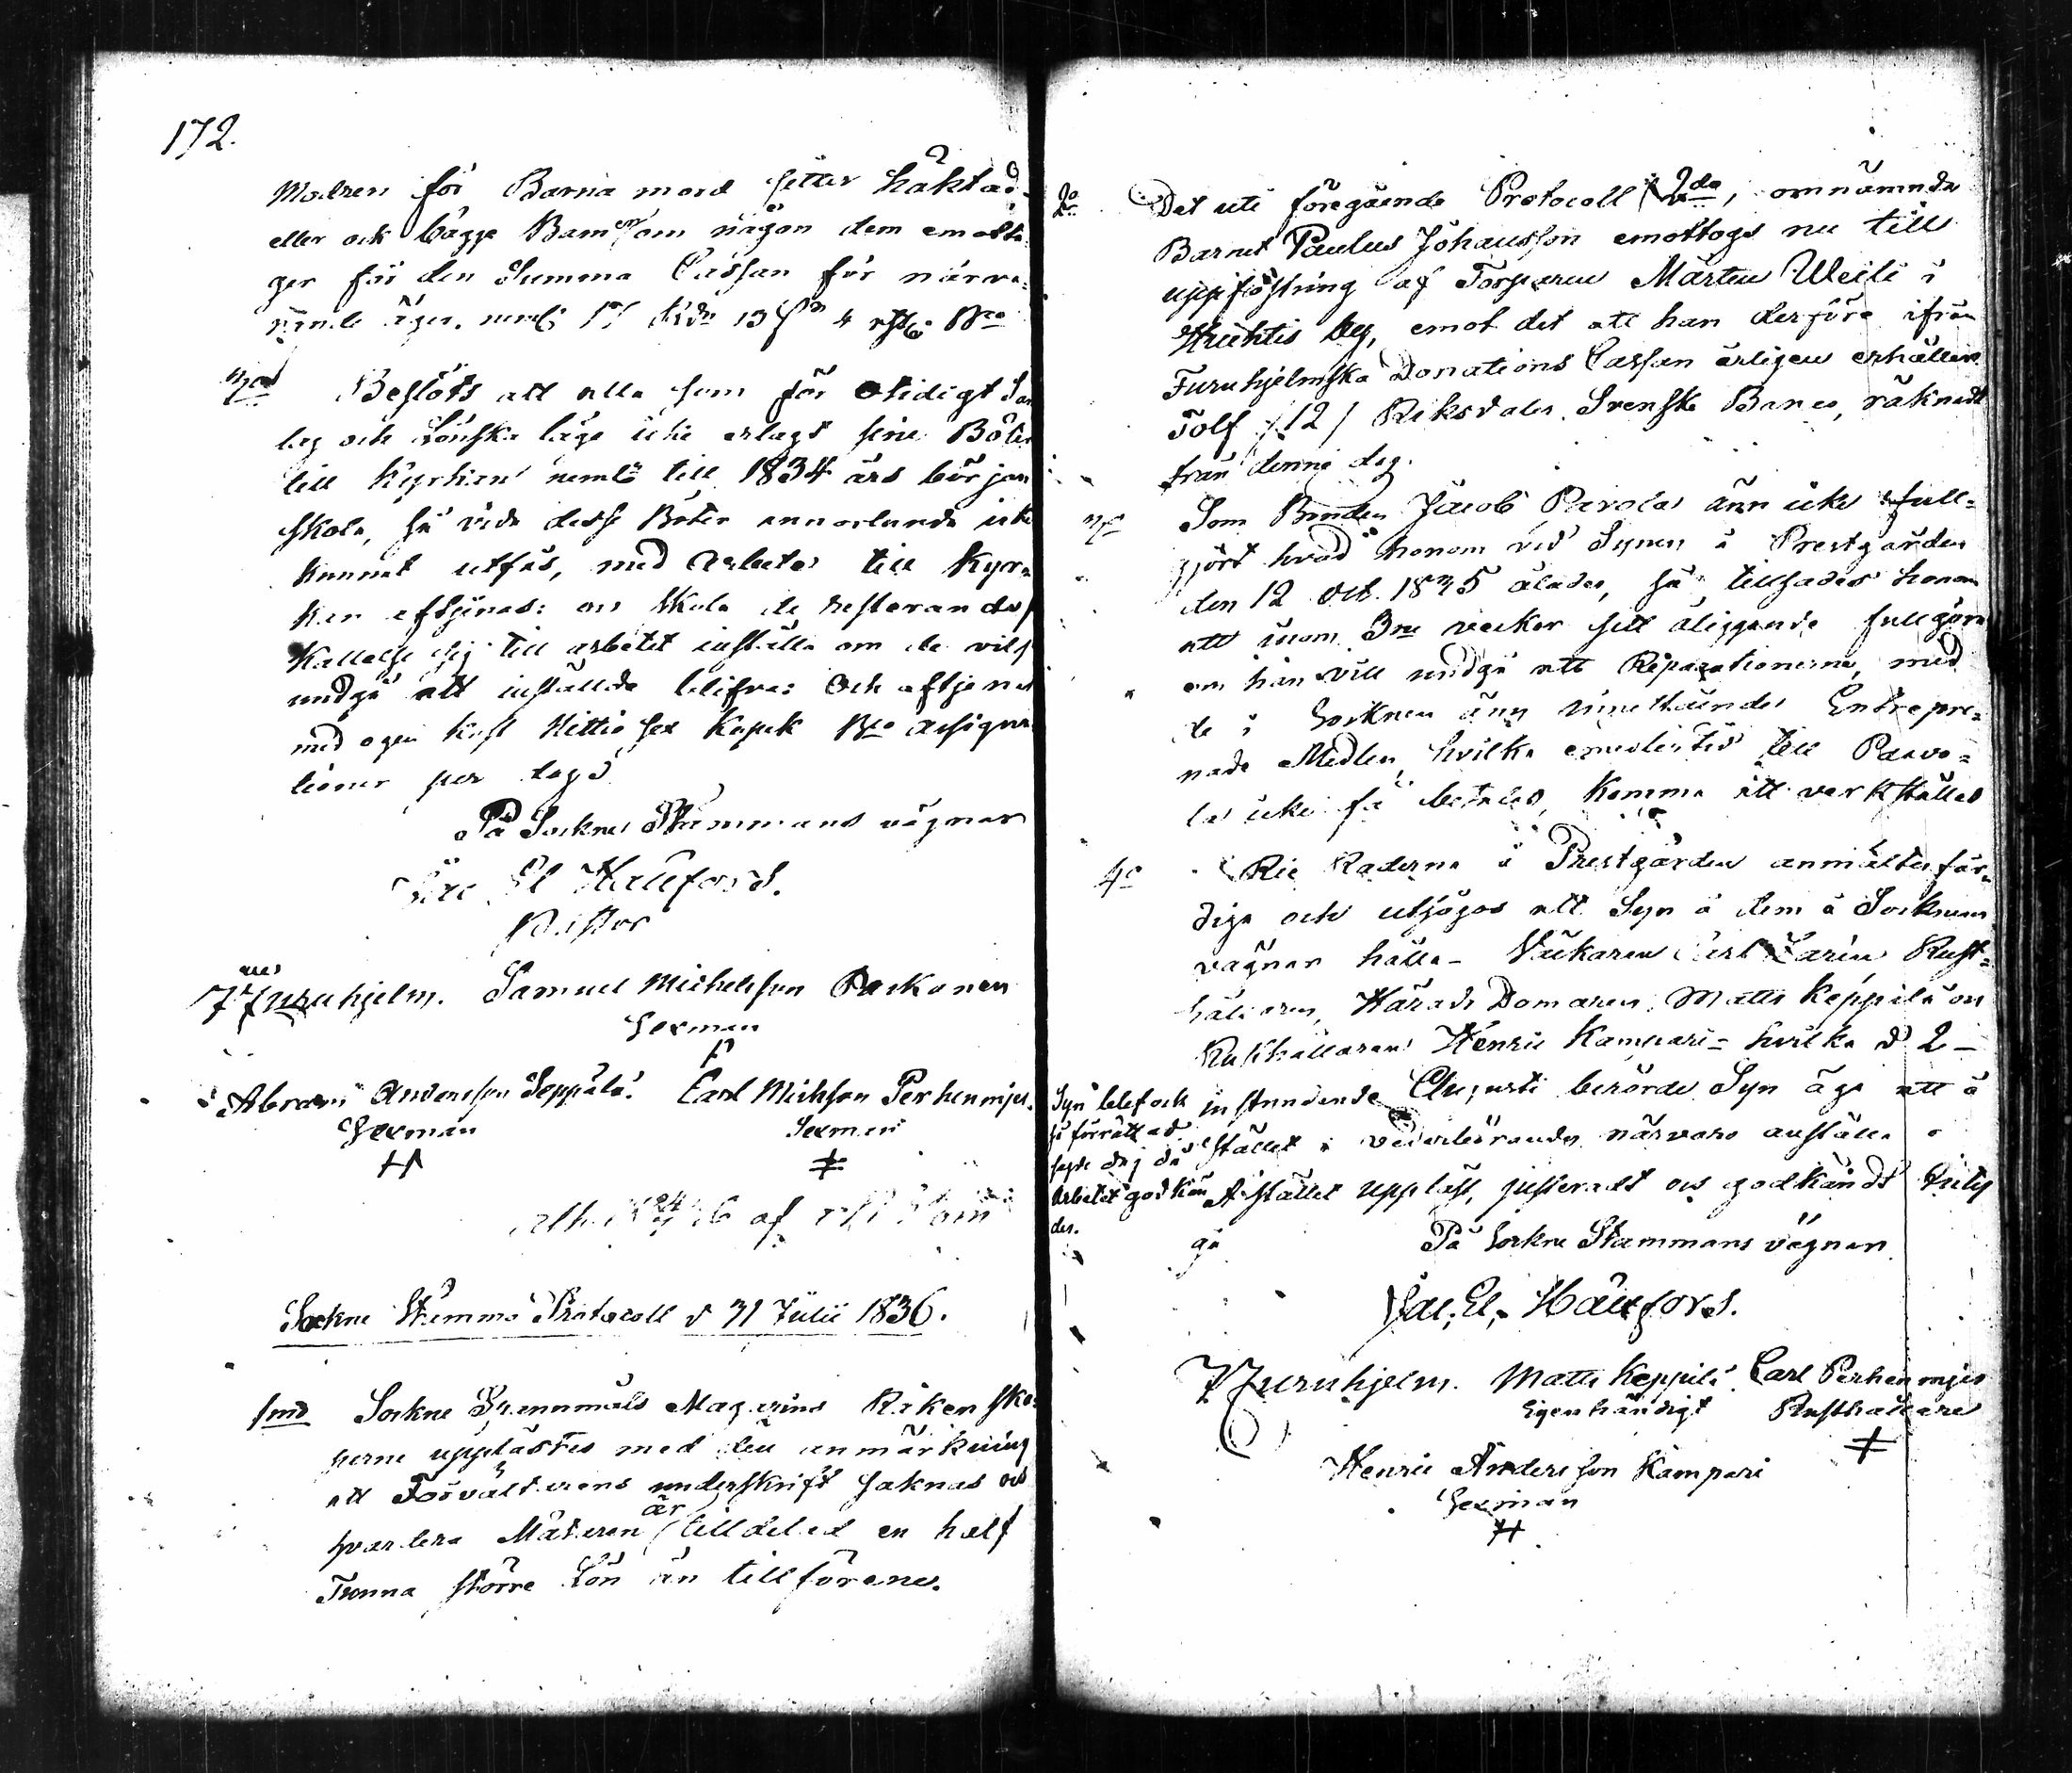 172.
Modren för Barna mord sitter häktad
eller ock bägge Barnen om någon dem emotta-
ger för den Summa Cassan för närva-
rande äger, neml. 17 Rdr 13 s. 4 rst. Bco
3o Beslöts att alla som för otidigt Sän
lag och Lönska läge icke erlagt sine Böter
till Kyrkan neml. till 1834 års början
skola, så vida desse Böter annorlunda icke
kunnat utfås, med arbete till Kyr-
kan aftjenas: och skola de resterande
Kallelse sig till arbetet inställa om de vilja
undgå att inställde blifva: Och aftjenas
med egen kost Nittio sex Kopek Bco Assigna
tioner per dag
På Sockne Stämmans vägnar
Jac. El. Hällfors.
Pastor
Furuhjelm. Samuel Michelsson Paskonen
Sexman
Abram Andersson Seppälä. Carl Michsson Perhenmjes.
Sexman Sexman
Sockne Stämmo Protocoll d 31 Julii 1836.
1mo Sockne Spannmåls Magasins Räkenska-
perne upplästes med den anmärkning
att Förvaltarens underskrift saknas och
hvarlera Mätaren är tilldelad en half
Tunna större Lön än tillförene.
2o Det uti föregående Protocoll § 2da, omnämnda
Barnet Paulus Johansson emottogs nu till
uppfostring af Torparen Mårten Weili i
Huhtis by, emot det att han derföre ifrån
Furuhjelmska Donations Cassan årligen erhåller
Tolf /12/ Riksdaler Svenske Banco, räknadt
från denna dag.
3o Som Bonden Jacob Parola änn icke full-
gjort hvad honom vid Synen å Prestgården
den 12 Oct. 1835 ålades, så tillsades honom
att inom 3ne veckor sitt åliggande fullgöra
om han vill undgå att Reparationerna, med
de i Socknen änn innestående Entrepre-
nade Medlen, hvilka emedlertid till Paavo-
la icke få betalas, komma att verkställas
4o Rie Raderne å Prestgården anmältes fär-
dige och utsågos att Syn å dem å Socknens
vägnar hålla Vickaren Carl Larin Rust-
hållaren, Härads Domaren, Matts Keppilä och
Rusthållaren Henric Kampari hvilka d 2
instundande Augusti berörde Syn äga att å
Stället i vederbörandes närvaro anställa
Syn blef ock
så förrättad
sagde dag då
Arbetet godkän
des.
A stället uppläst, justeradt och godkändt
På Sockne Stammans vägnar
Jac. El. Hällfors.
Furuhjelm. Matts Keppilä Carl Perhenmjes
Egenhändigt Rusthållare
Henric Andersson Kampari
Sexman